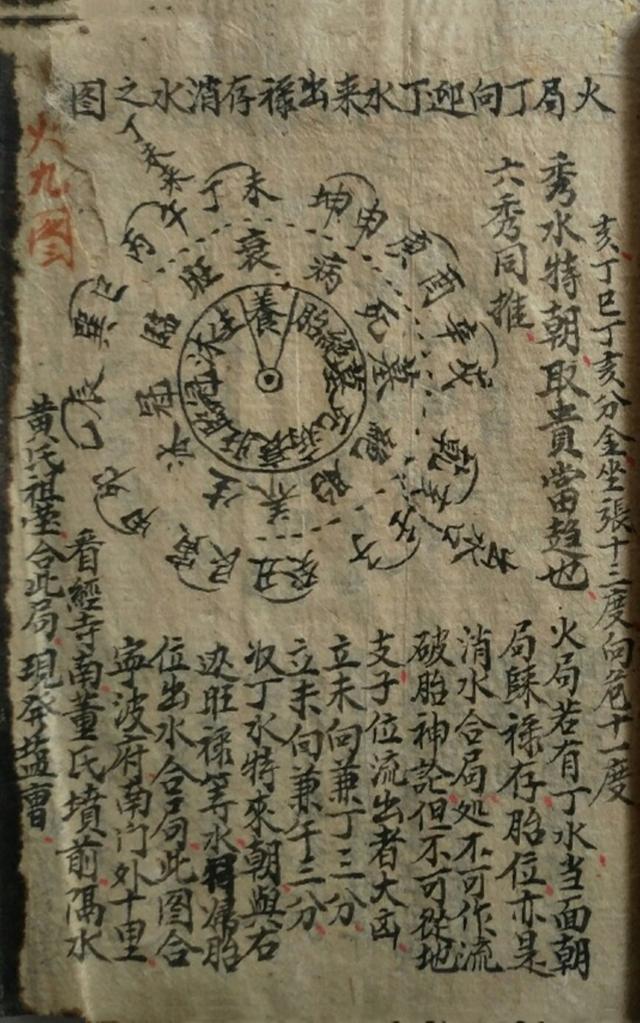 火局丁向迎丁水来出禄存消水之图
火九图
亥丁巳丁亥分金坐張十三度向危十一度
秀水特朝取貴當趋也
六秀同推
火局若有丁水当面朝
局縣禄存胎位亦是
消水合局処不可作流
破胎神論但不可從地
支子位流出者大凶
立未向兼丁三分
立未向兼午三分
収丁水特來朝與右
边旺禄等水歸胎
位出水合局此图合
寧波府南门外十里
看經寺南董氏墳前隔水
黄氏祖塋合此局現發塩曹
丁未来
未
丁
午
丙
巳
巽
辰
乙
寅
艮
丑
癸
乾
戌
辛
酉
庚
申
坤
衰
病
死
墓
胎
养
生
冠
旺
養
胎
絕
墓